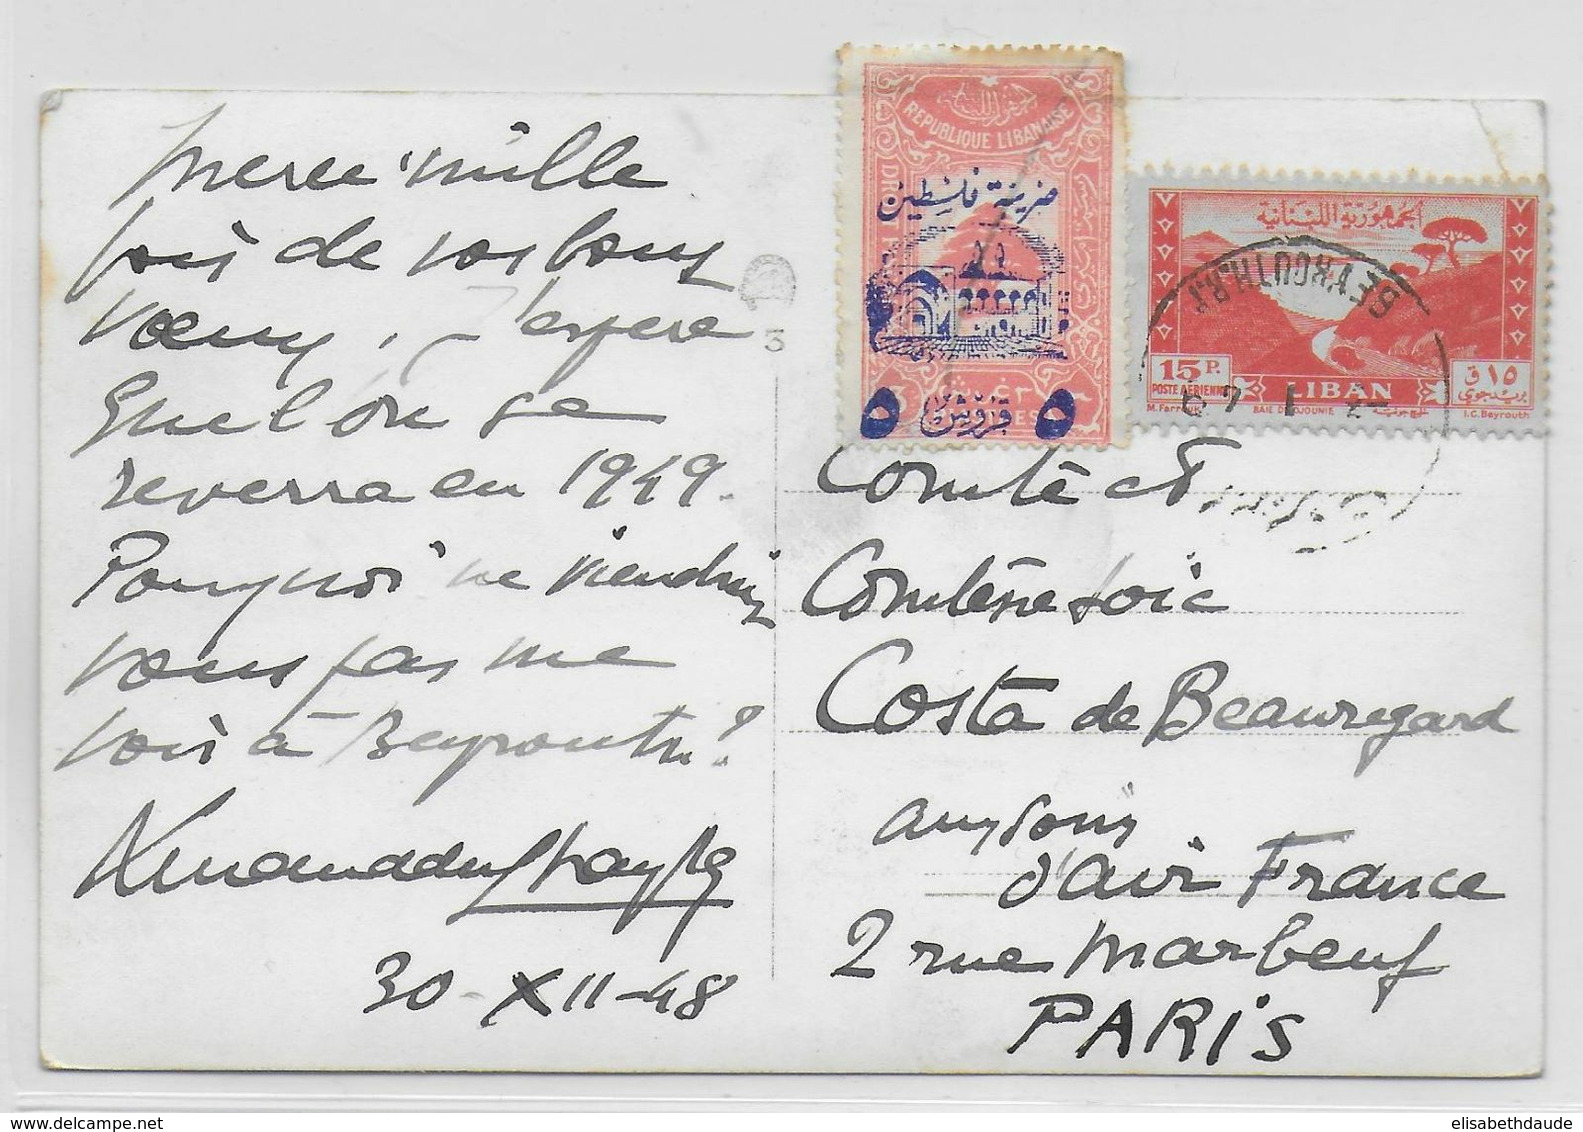 merci mille
fois de vos bons
vœux. J'espère
Quel'on se
reverra en 1949.
Pourquoi ne viendriez
vous pas me
voir à Beyrouth?
30-XII-48
3
الجمهورية اللبنانية
REPUBLIQUE LIBANAISE
DROIT
ضريبة فلسطين
٥ قروش ٥
الجمهورية اللبنانية
BEYROUTH R.P.
15 P. LIBAN ١٥ ق
POSTE AERIENNE بريد جوي
M. Farrouk BAIE DE DJOUNIE I.C. Beyrouth
Comte et
Comtesse
Costa de Beauregard
d'air France
2 rue Marbeuf
PARIS
elisabethdaude